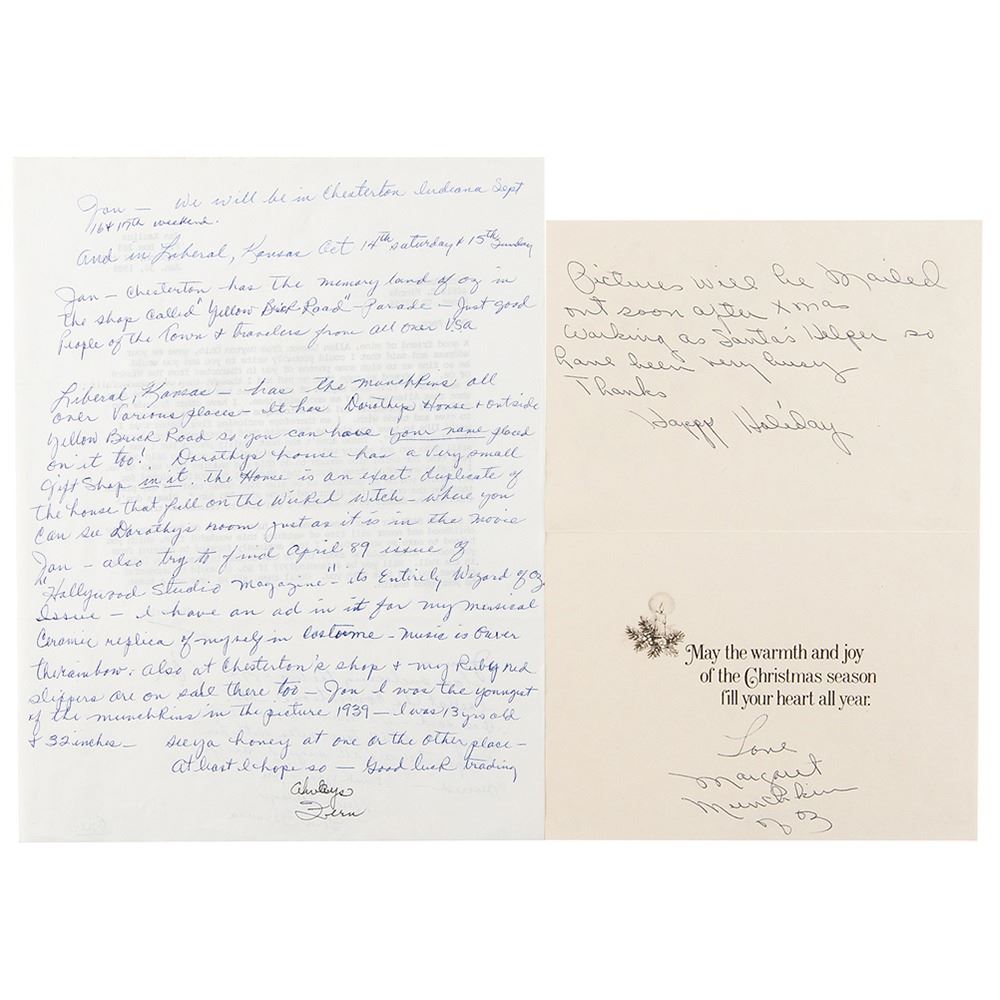 Jan — We will be in Chesterton Indiana Sept
16 & 17th weekend.
And in Liberal, Kansas Oct 14th saturday & 15th Sunday
Jan — Chesterton has the memory land of oz in
the shop called "Yellow Brick Road" - Parade — Just good
People of the Town & travelers from all over USA
Liberal, Kansas — has the munchkins all
over Various places — It has Dorothys House & outside
Yellow Brick Road so you can have your name placed
on it too! Dorothys house has a very small
Gift Shop in it. the House is an exact duplicate of
the house that fell on the Wicked witch — where you
can see Dorothys room just as it is in the movie
Jan — also try to find April 89 issue of
"Hollywood Studio Magazine" - its Entirely Wizard of Oz
Issue — I have an ad in it for my musical
Ceramic replica of myself in Costume - Music is Over
therainbow: also at Chesterton's shop & my Ruby red
slippers are on sale there too — Jan I was the youngest
of the munchkins in the picture 1939 — I was 13 yrs old
& 32 inches — seeya honey at one or the other place —
at least I hope so — Good luck trading
Always
Fern
Pictures will be Mailed
out soon after Xmas
Working as Santa's Helper so
have been very busy
Thanks
Happy Holiday
May the warmth and joy
of the Christmas season
fill your heart all year.
Love
Margaret
Munchkin
of Oz